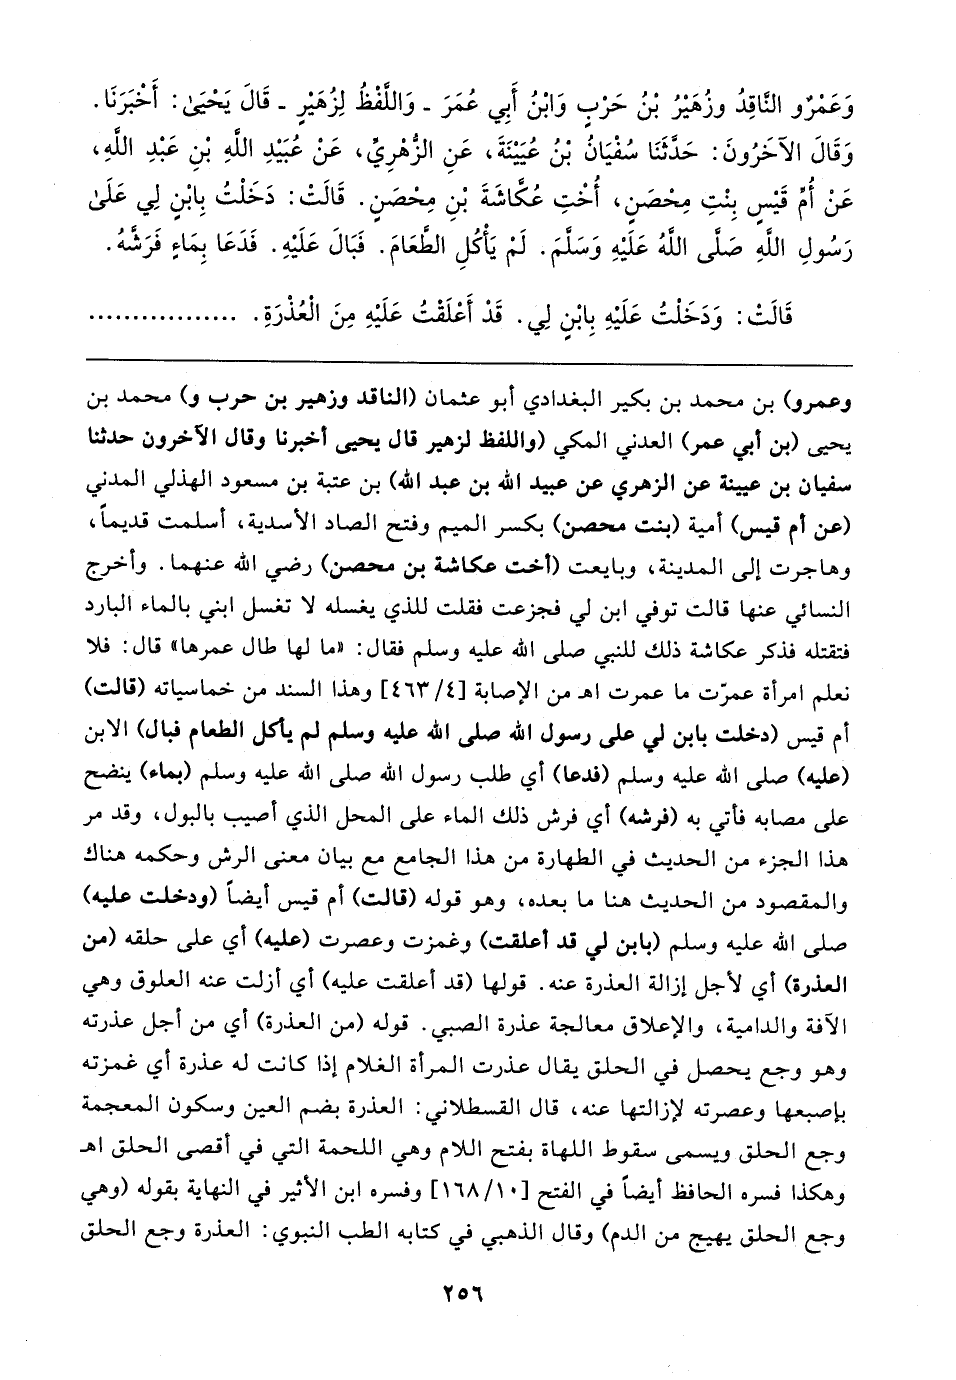 وَعَمْرٌو النَّاقِدُ وزُهَيْرُ بْنُ حَرْبٍ وَابْنُ أَبِي عُمَرَ ـ وَاللَّفْظُ لِزُهَيْرٍ ـ قَالَ يَحْيَىٰ: أَخْبَرَنَا.
وَقَالَ الآخَرُونَ: حَدَّثَنَا سُفْيَانُ بْنُ عُيَيْنَةَ، عَنِ الزُّهْرِيِّ، عَنْ عُبَيْدِ اللَّهِ بْنِ عَبْدِ اللَّهِ،
عَنْ أُمِّ قَيْسٍ بِنْتِ مِحْصَنٍ، أُخْتِ عُكَّاشَةَ بْنِ مِحْصَنٍ. قَالَتْ: دَخَلْتُ بِابْنٍ لِي عَلَىٰ
رَسُولِ اللَّهِ صَلَّى اللَّهُ عَلَيْهِ وَسَلَّمَ. لَمْ يَأْكُلِ الطَّعَامَ. فَبَالَ عَلَيْهِ. فَدَعَا بِمَاءٍ فَرَشَّهُ.
قَالَتْ: وَدَخَلْتُ عَلَيْهِ بِابْنٍ لِي. قَدْ أَعْلَقْتُ عَلَيْهِ مِنَ الْعُذْرَةِ. .................
وعمرو) بن محمد بن بكير البغدادي أبو عثمان (الناقد وزهير بن حرب و) محمد بن
يحيى (بن أبي عمر) العدني المكي (واللفظ لزهير قال يحيى أخبرنا وقال الآخرون حدثنا
سفيان بن عيينة عن الزهري عن عبيد الله بن عبد الله) بن عتبة بن مسعود الهذلي المدني
(عن أم قيس) أمية (بنت محصن) بكسر الميم وفتح الصاد الأسدية، أسلمت قديماً،
وهاجرت إلى المدينة، وبايعت (أخت عكاشة بن محصن) رضي الله عنهما. وأخرج
النسائي عنها قالت توفي ابن لي فجزعت فقلت للذي يغسله لا تغسل ابني بالماء البارد
فتقتله فذكر عكاشة ذلك للنبي صلى الله عليه وسلم فقال: «ما لها طال عمرها» قال: فلا
نعلم امرأة عمرّت ما عمرت اهـ من الإصابة [٤/ ٤٦٣] وهذا السند من خماسياته (قالت)
أم قيس (دخلت بابن لي على رسول الله صلى الله عليه وسلم لم يأكل الطعام فبال) الابن
(عليه) صلى الله عليه وسلم (فدعا) أي طلب رسول الله صلى الله عليه وسلم (بماء) ينضح
على مصابه فأتي به (فرشه) أي فرش ذلك الماء على المحل الذي أصيب بالبول، وقد مر
هذا الجزء من الحديث في الطهارة من هذا الجامع مع بيان معنى الرش وحكمه هناك
والمقصود من الحديث هنا ما بعده، وهو قوله (قالت) أم قيس أيضاً (ودخلت عليه)
صلى الله عليه وسلم (بابن لي قد أعلقت) وغمزت وعصرت (عليه) أي على حلقه (من
العذرة) أي لأجل إزالة العذرة عنه. قولها (قد أعلقت عليه) أي أزلت عنه العلوق وهي
الآفة والدامية، والإعلاق معالجة عذرة الصبي. قوله (من العذرة) أي من أجل عذرته
وهو وجع يحصل في الحلق يقال عذرت المرأة الغلام إذا كانت له عذرة أي غمزته
بإصبعها وعصرته لإزالتها عنه، قال القسطلاني: العذرة بضم العين وسكون المعجمة
وجع الحلق ويسمى سقوط اللهاة بفتح اللام وهي اللحمة التي في أقصى الحلق اهـ
وهكذا فسره الحافظ أيضاً في الفتح [١٠/ ١٦٨] وفسره ابن الأثير في النهاية بقوله (وهي
وجع الحلق يهيج من الدم) وقال الذهبي في كتابه الطب النبوي: العذرة وجع الحلق
٢٥٦